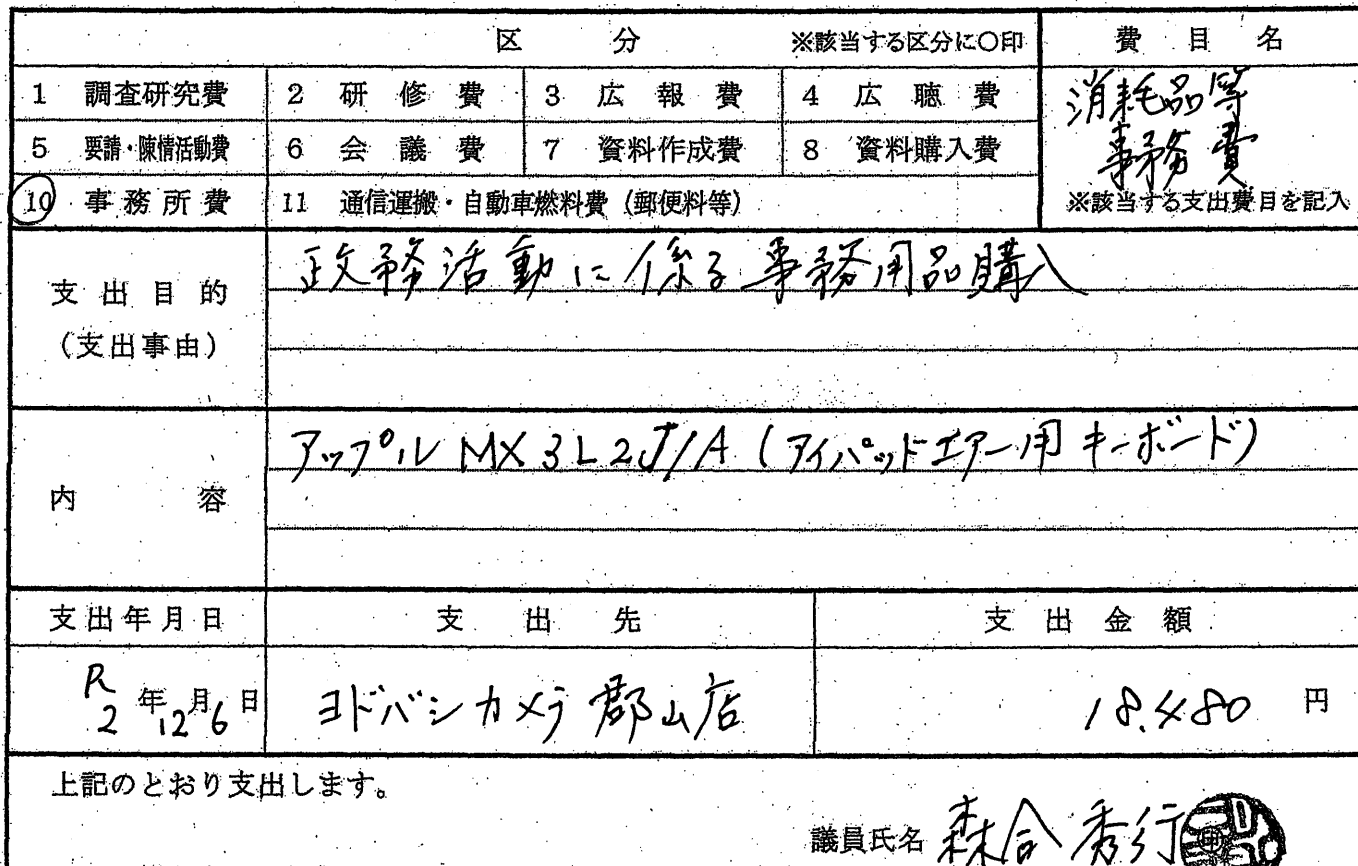 区 分 ※該当する区分に○印 費 目 名
1 調査研究費 2 研 修 費 3 広 報 費 4 広 聴 費 消耗品等
5 要請・陳情活動費 6 会 議 費 7 資料作成費 8 資料購入費 事務費
10 事 務 所 費 11 通信運搬・自動車燃料費（郵便料等） ※該当する支出費目を記入
支 出 目 的
（支出事由）
政務活動に係る事務用品購入
内 容
アップル MX3L2J/A (アイパッドエアー用キーボード)
支出年月日 支 出 先 支 出 金 額
R2年12月6日 ヨドバシカメラ 郡山店 18,480 円
上記のとおり支出します。
議員氏名 森合 秀行